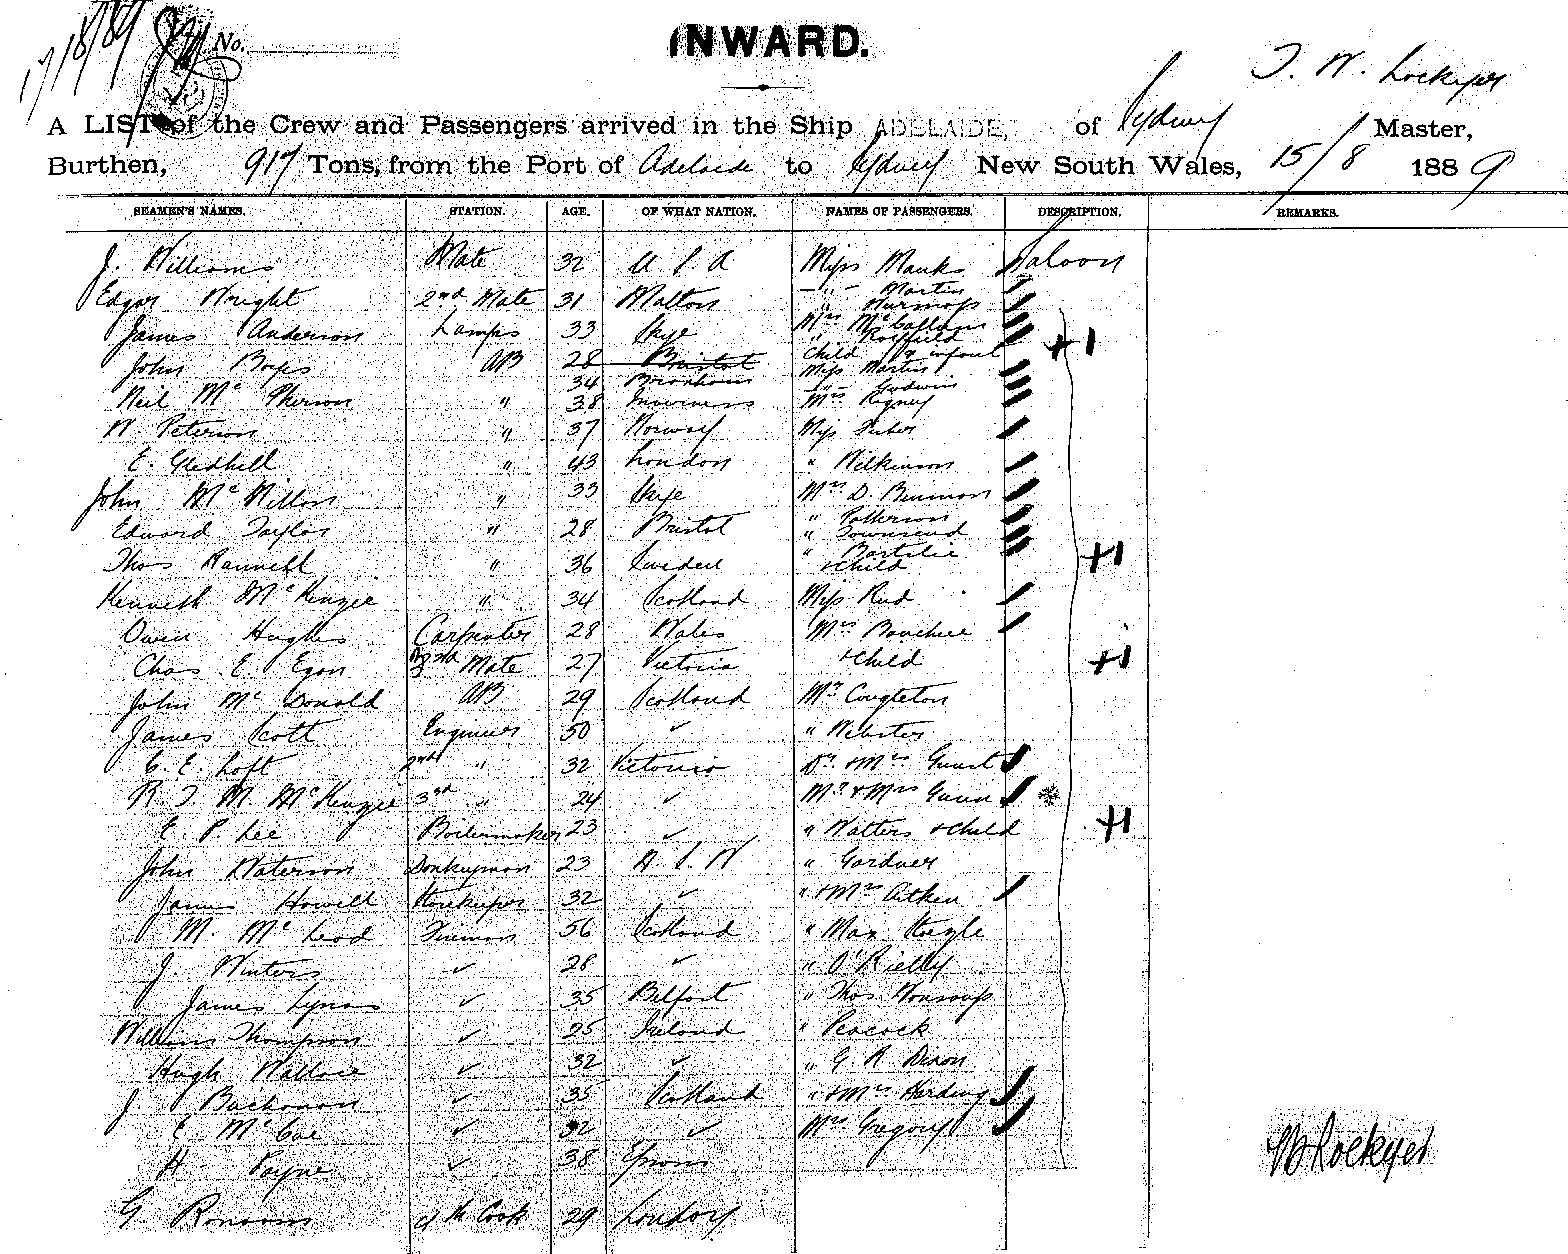 17/8/89
No.
INWARD.
J. W. Lockyer
A LIST of the Crew and Passengers arrived in the Ship ADELAIDE, of Sydney Master,
Burthen, 917 Tons, from the Port of Adelaide to Sydney New South Wales, 15/8 1889
SEAMEN'S NAMES. STATION. AGE. OF WHAT NATION. NAMES OF PASSENGERS. DESCRIPTION. REMARKS.
J. Williams Mate 32 U S A Miss Manks Saloon
Edgar Wright 2nd Mate 31 Malton -"- Martin
"
James Anderson Lamps 33 Skye Mrs McCallum
"
+1
John Boyes AB 28 Bristol Child & infant
34 Miss Martin
Neil McPherson " 38 Inverness -"- Godwin
Mrs Rigney
W. Peterson " 37 Norway Miss Fisher
E. Gledhill " 43 London " Wilkinson
John McMillon " 33 Skye Mrs D. Benmon
Edward Taylor " 28 Bristol " Patterson
" Townsend
Thos " 36 Sweden "
+ Child +1
Kenneth McKenzie " 34 Scotland Miss Reid
Owen Hughes Carpenter 28 Wales Mrs
Chas E. Egan 3rd Mate 27 Victoria + Child +1
John McDonald AB 29 Scotland Mr Congleton
James Scott Engineer 50 " " Webster
C. E. Loft 2nd " 32 Victoria Dr & Mrs
R J M McKenzie 3rd " 24 " Mr & Mrs Gunn
E. P. Lee Boilermaker 23 " " Walters & Child +1
John Waterson Donkeyman 23 N S W " Gardner
James Howell Storekeeper 32 " " & Mrs Aitken
M. McLeod Fireman 56 Scotland " Max
J. Winters " 28 " " O'Rielly
James Lynas " 35 Belfast " Thos
William Thompson " 25 Ireland " Peacock
Hugh Wallace " 32 " " G R Dixon
J. Buchanan " 35 Scotland " & Mrs Harding
E. McCoe " 32 " Mrs Gregory
H. Payne " 38 Epsom
G. Ransom Cook 29 London
Lockyer